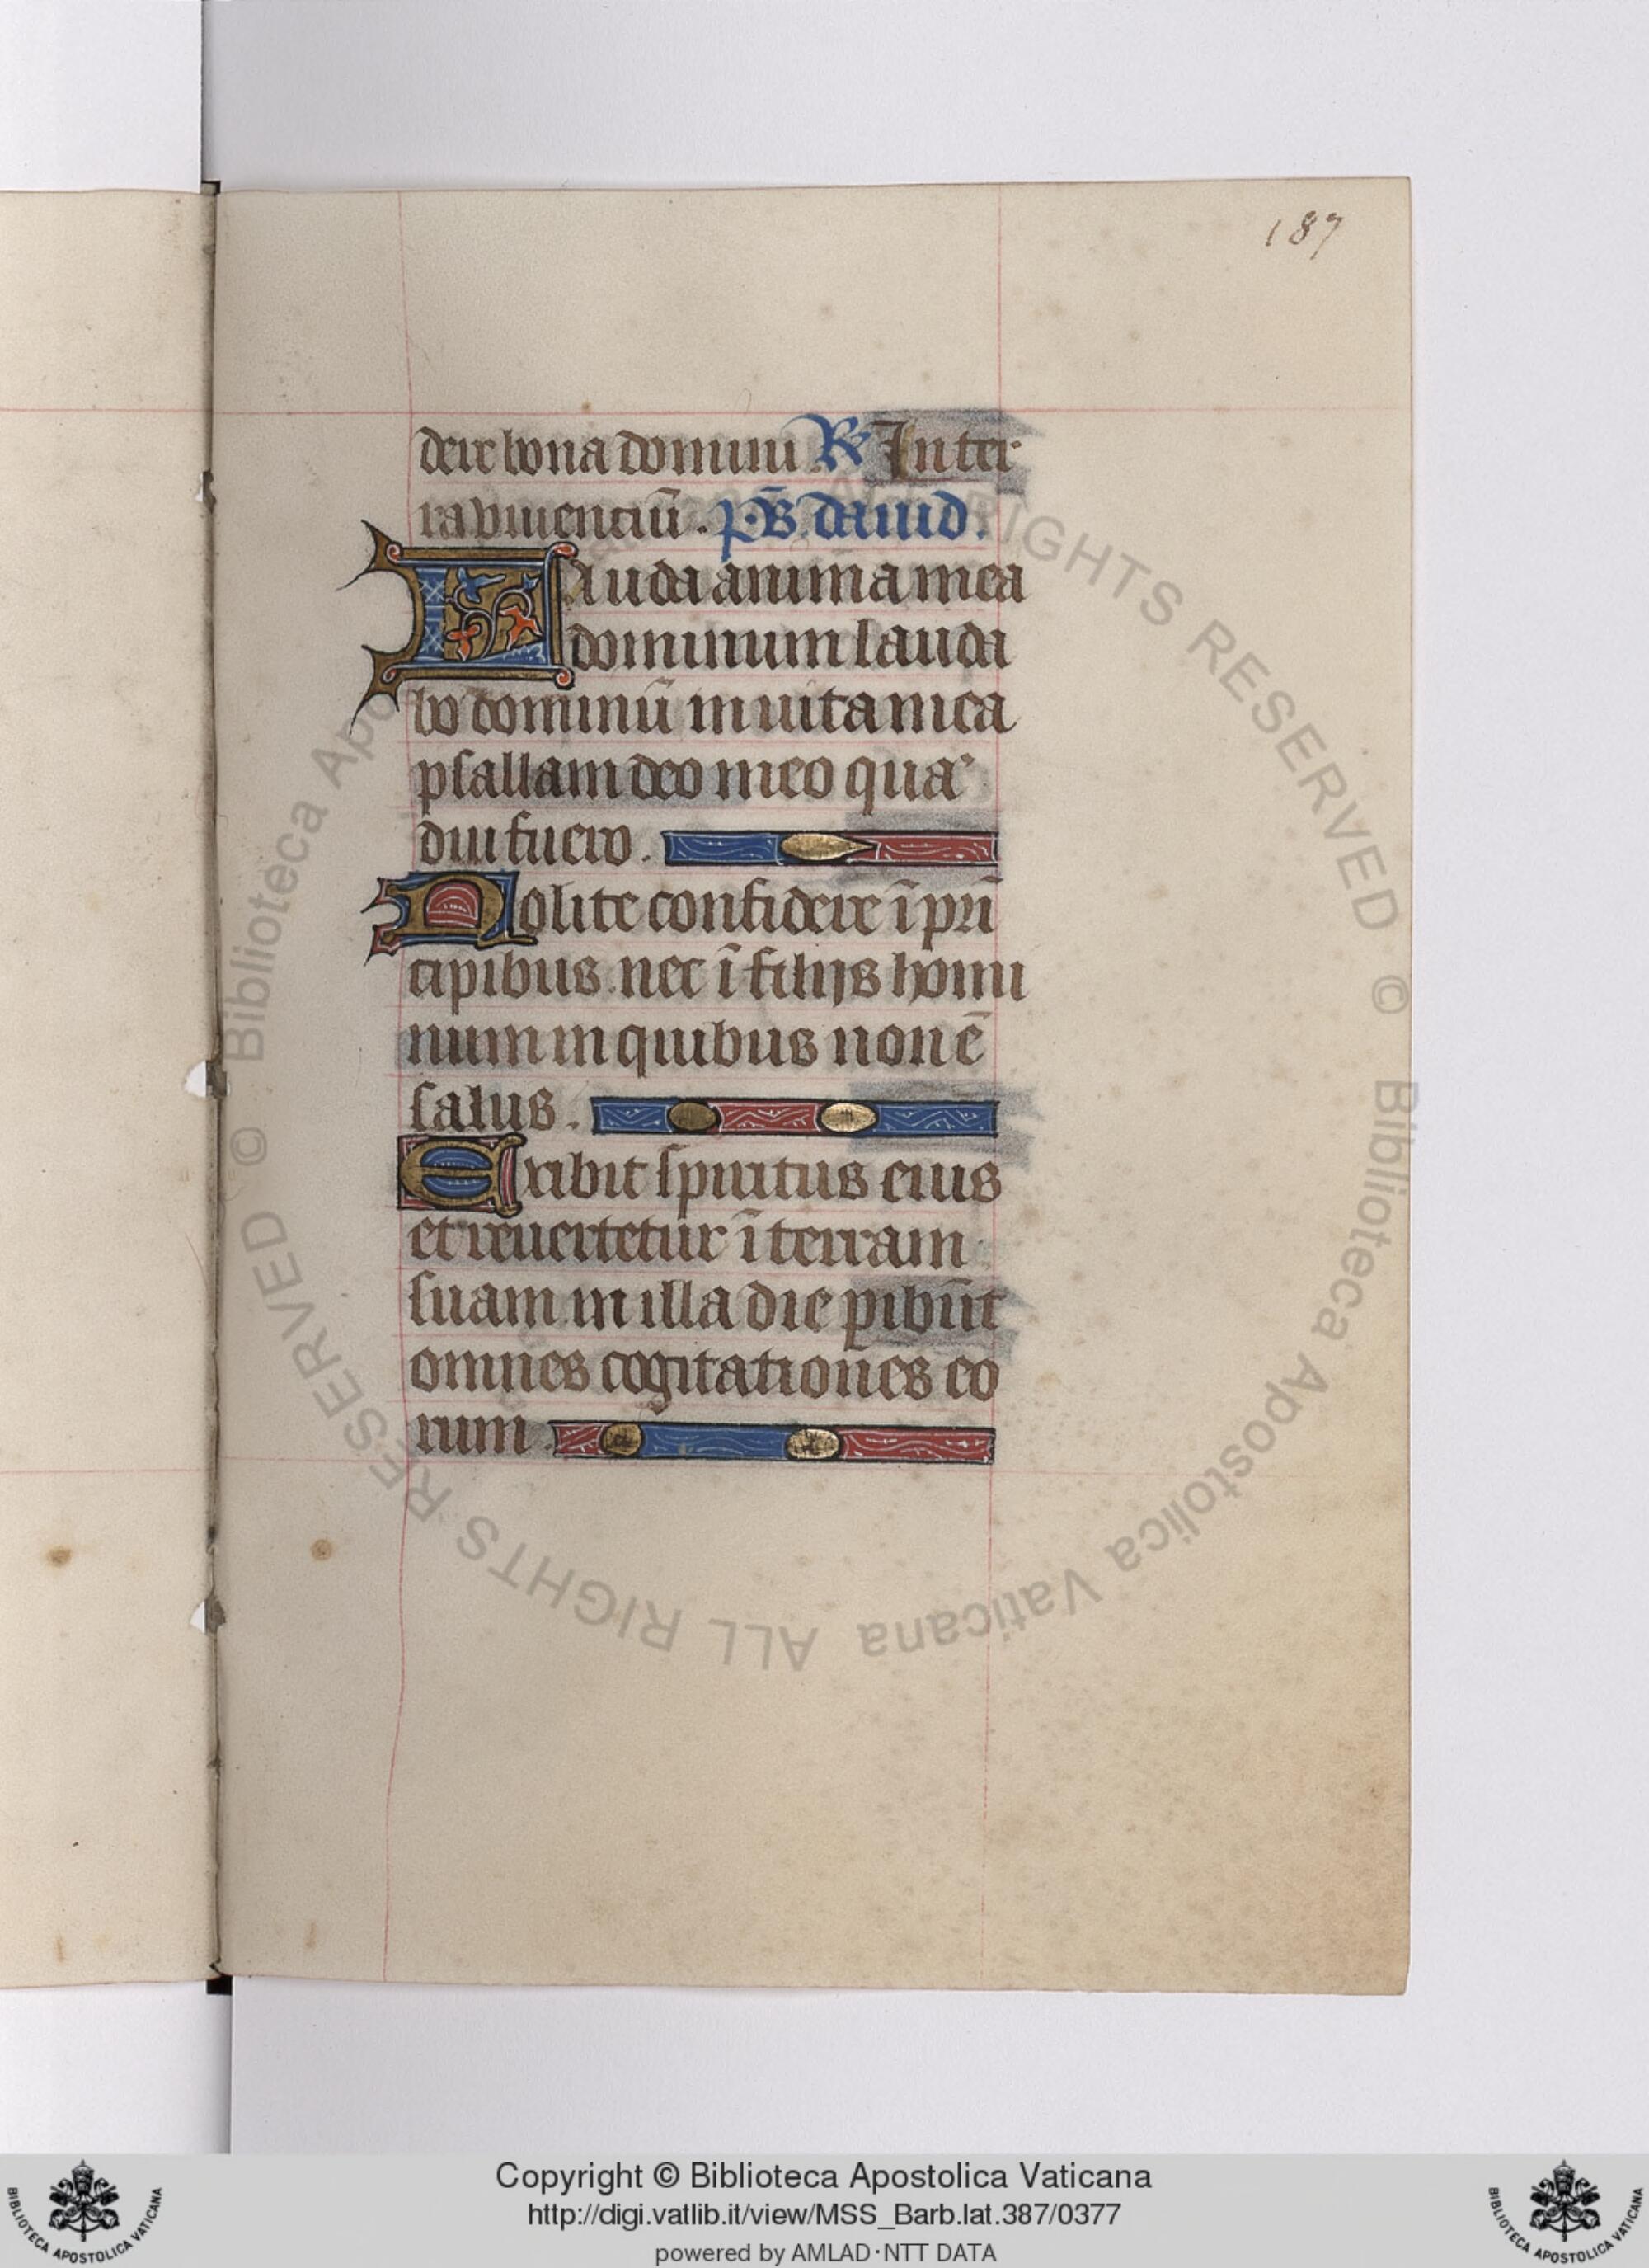 187
dere bona domini ℟ In ter
ra viuentiū. p̄s. dauid.
Lauda anima mea
dominum lauda
bo dominū in uita mea
psallam deo meo qua
diu fuero.
Nolite confidere ī prī
cipibus nec ī filijs homi
num in quibus non ē
salus.
Exibit spiritus eius
et reuertetur ī terram
suam in illa die ꝑibūt
omnes cogitationes eo
rum.
© Biblioteca Apostolica Vaticana ALL RIGHTS RESERVED © Biblioteca Apostolica Vaticana ALL RIGHTS RESERVED
Copyright © Biblioteca Apostolica Vaticana
http://digi.vatlib.it/view/MSS_Barb.lat.387/0377
powered by AMLAD·NTT DATA
BIBLIOTECA APOSTOLICA VATICANA
BIBLIOTECA APOSTOLICA VATICANA